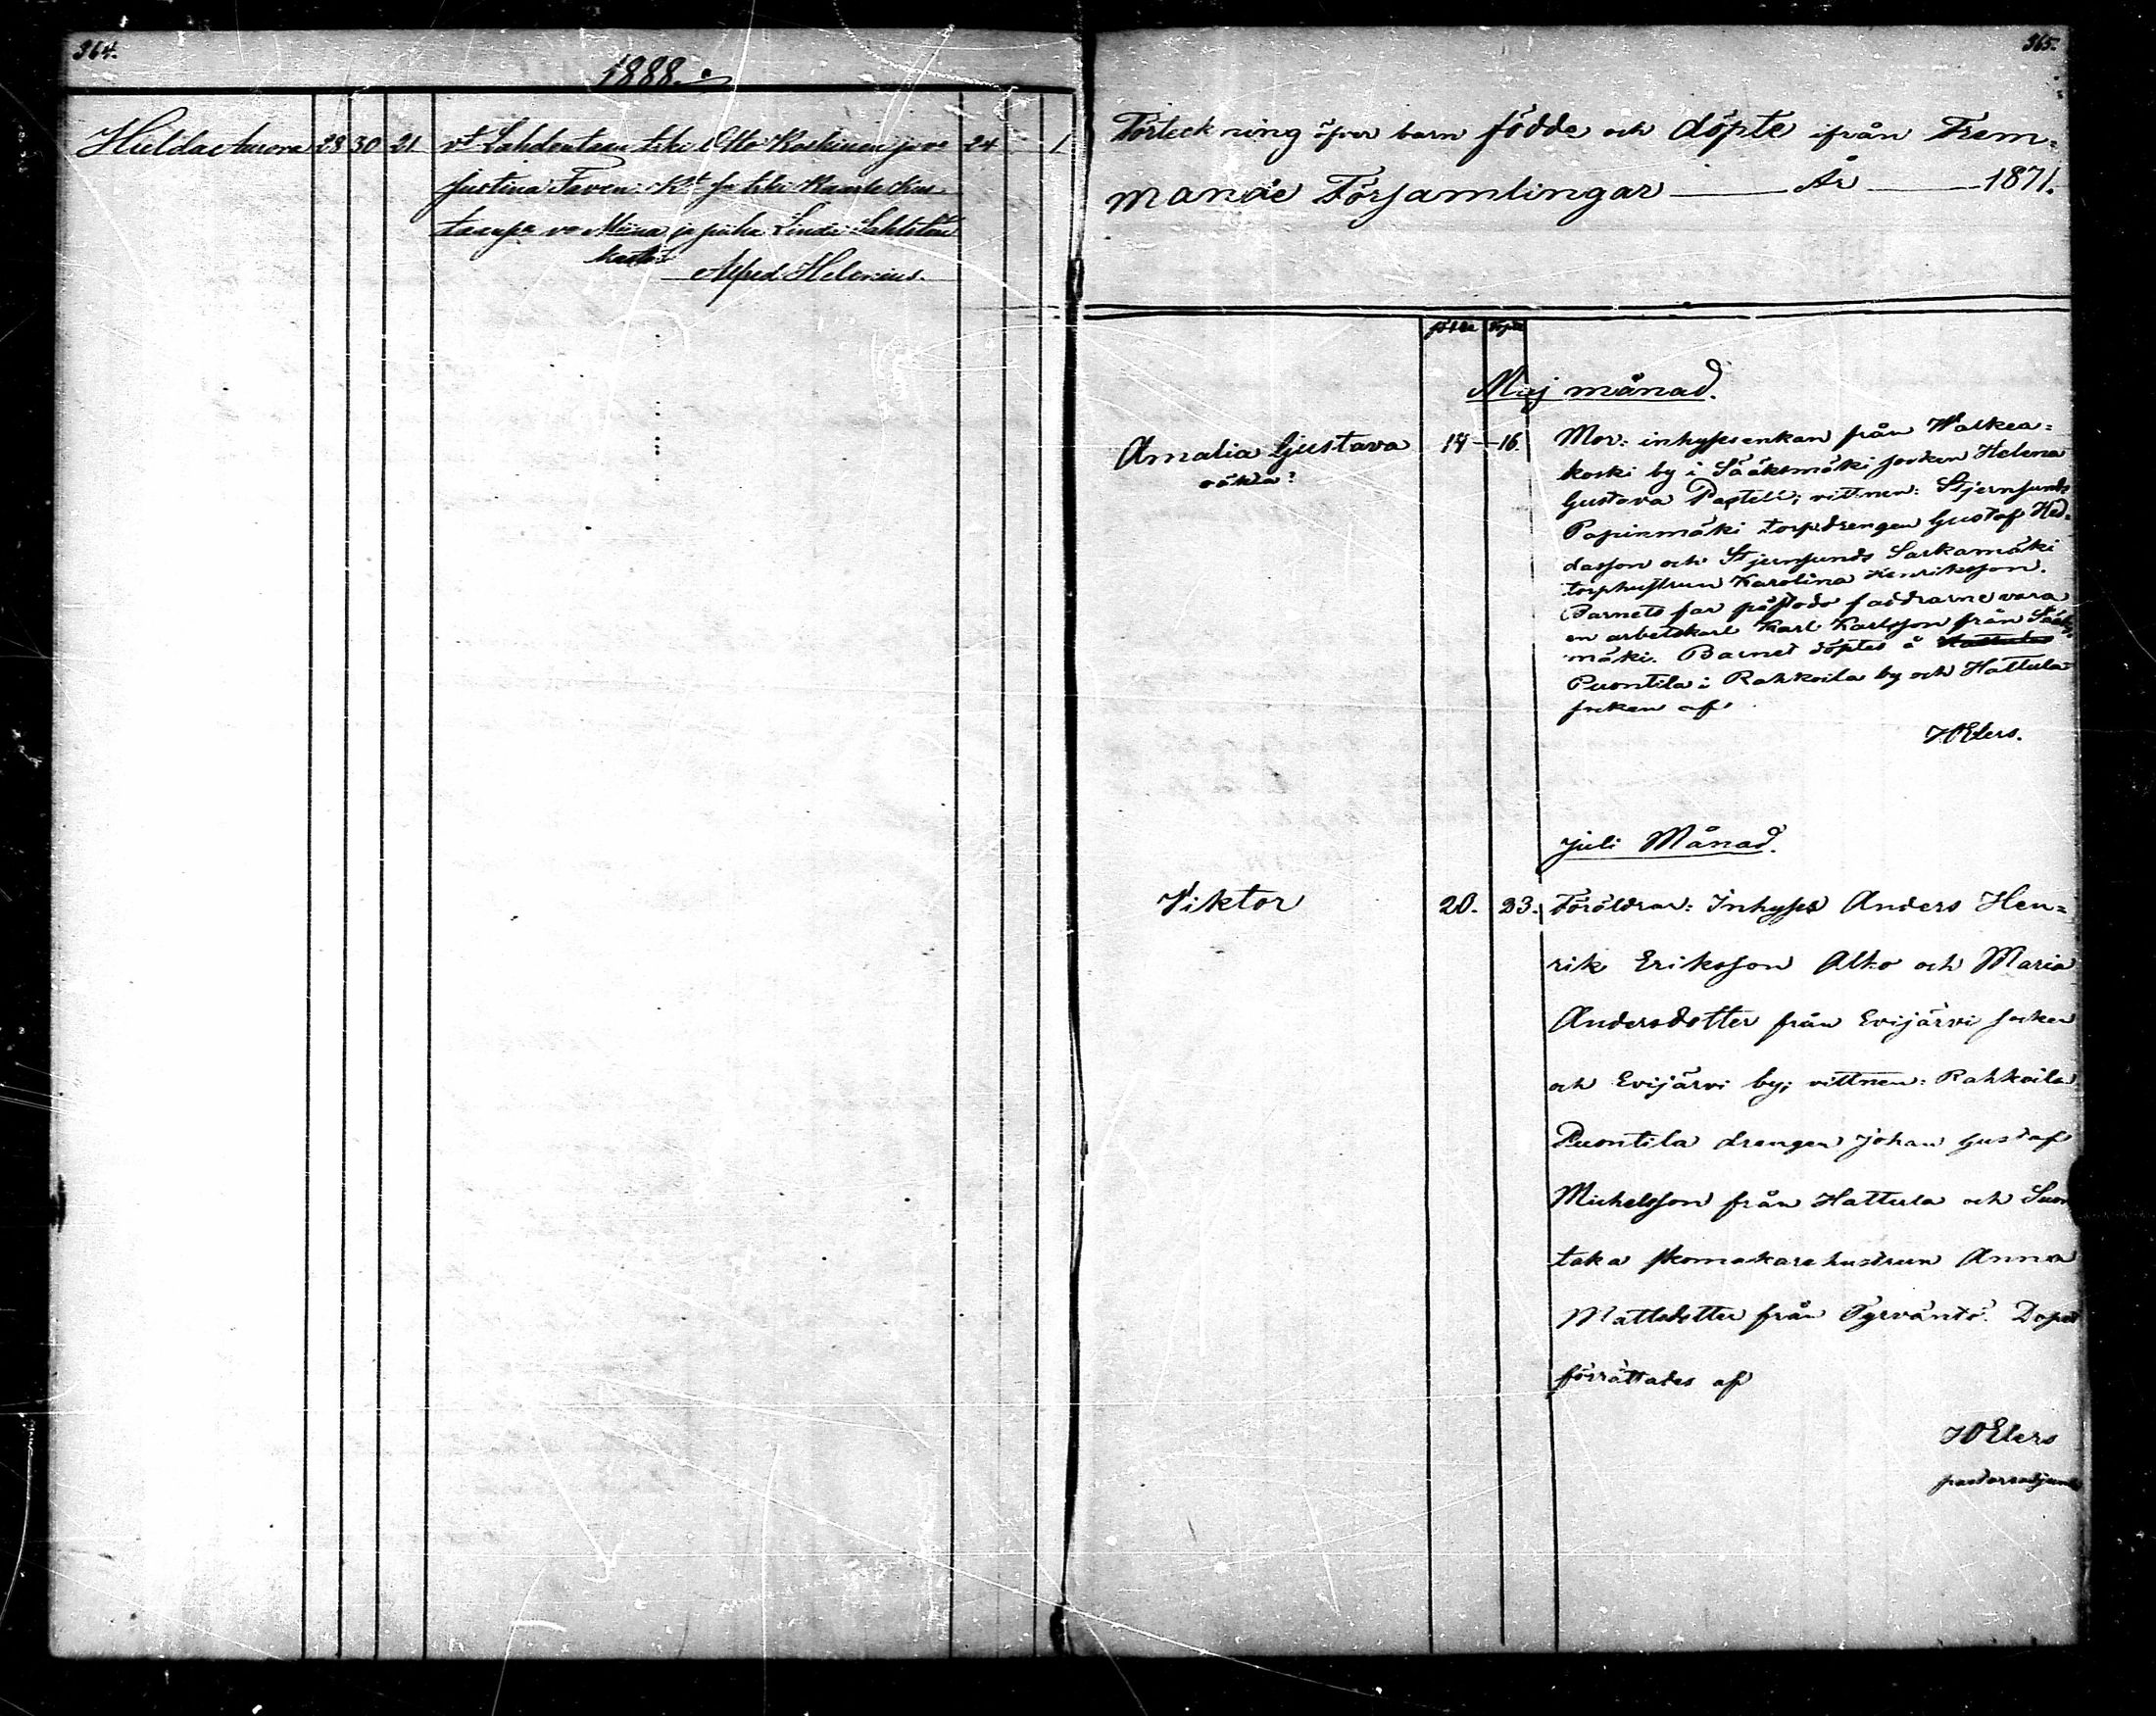 364.
1888.
Hilda Aurora 28 30 21 vt Lahdentaan Otto Koskinen ja vo 24 1
Justina
Miina ja piika
Alfred Helenius.
365.
Förteckning öfver barn födde och döpte ifrån Frem=
mande Församlingar — År — 1871.
födde döpte
Maj månad.
Amalia Gustava 14 — 16. Mor: inhysesenkan från Walkea=
oäkta:
koski by i Sääksmäki socken Helena
Gustava Pastell; vittnen: Stjernsunds
Papinmäki torpdrengen Gustaf
och Stjernsunds Sarkamäki
torphustrun Karolina Henriksson.
Barnets far påstods faddrarne vara
en arbetskarl Karl Karlsson från Sääks=
mäki. Barnet döptes å
Puontila i Rahkoila by och Hattula
socken af
HOElers.
Juli Månad.
Viktor 20. 23. Föräldrar: Inhyses Anders Hen=
rik Eriksson Alho och Maria
Andersdotter från Evijärvi socken
och Evijärvi by; vittnen: Rahkoila
Puontila drengen Johan Gustaf
Michelsson från Hattula och Suon
taka skomakarehustrun Anna
Mattsdotter från Tyrväntö. Dopet
förrättades af
HOElers
pastorsadjunkt